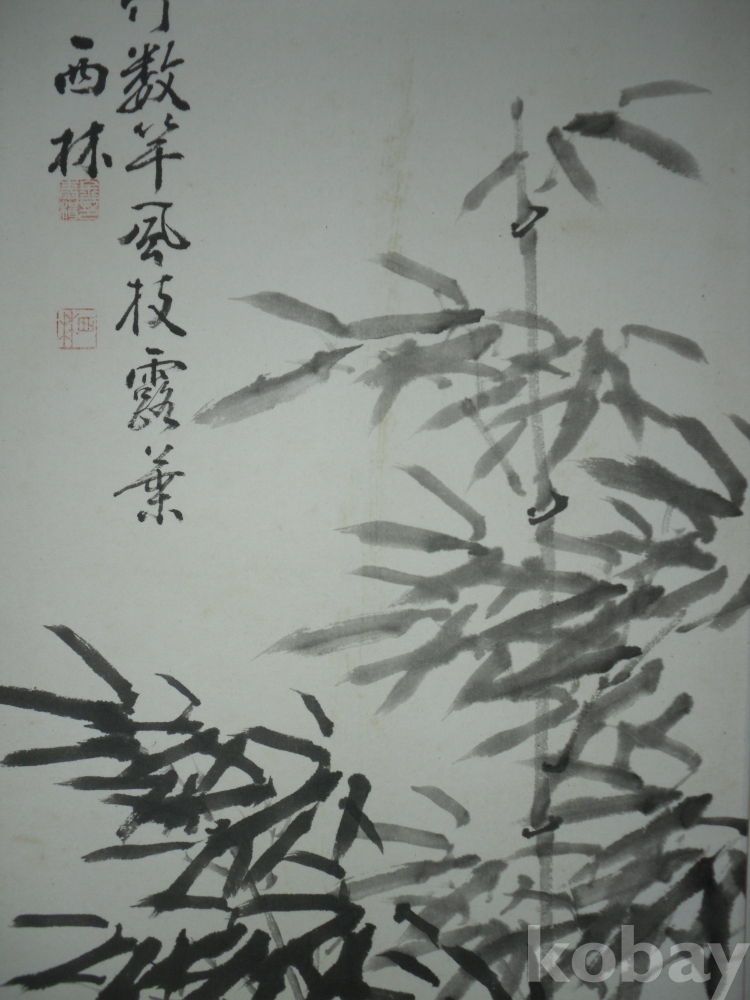 竹数竿風枝露葉
西林
kobay